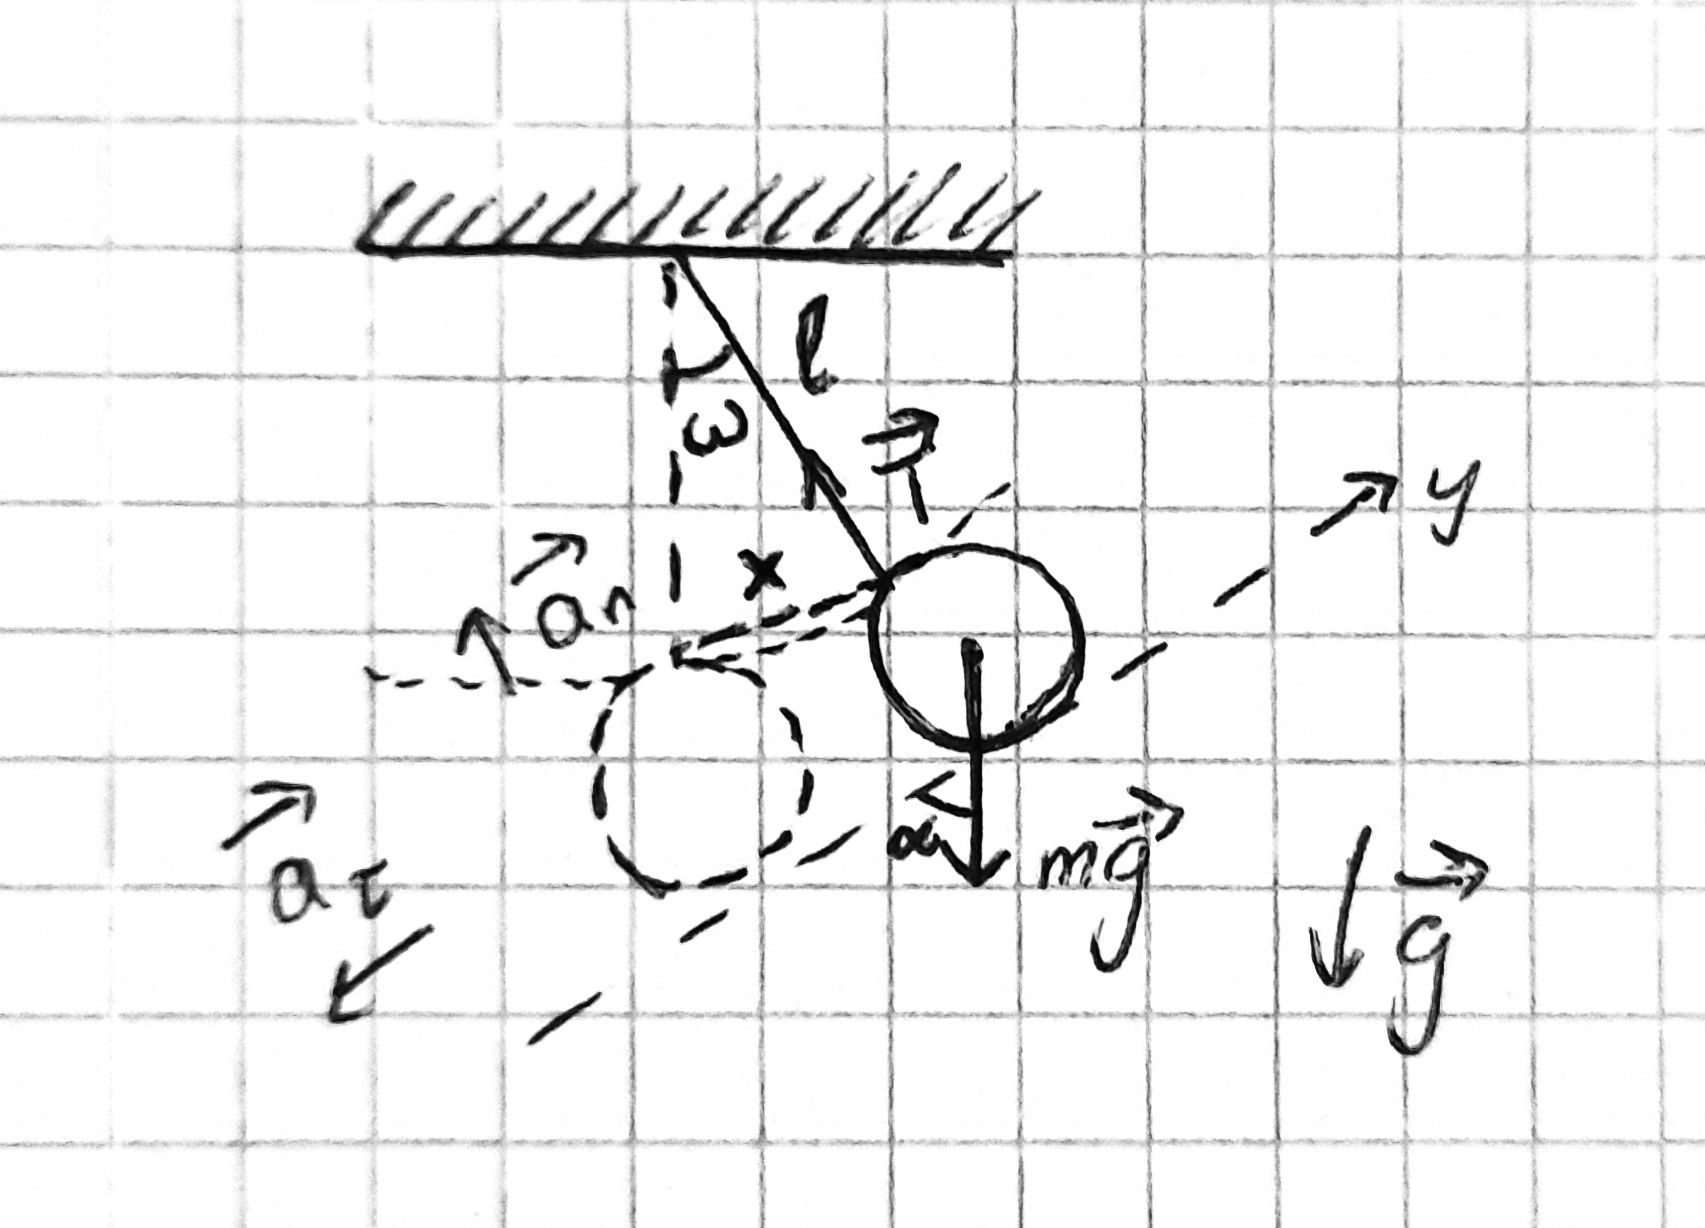 l
ω
T⃗
y
x
a⃗ₙ
a⃗_τ
α
mg⃗
g⃗